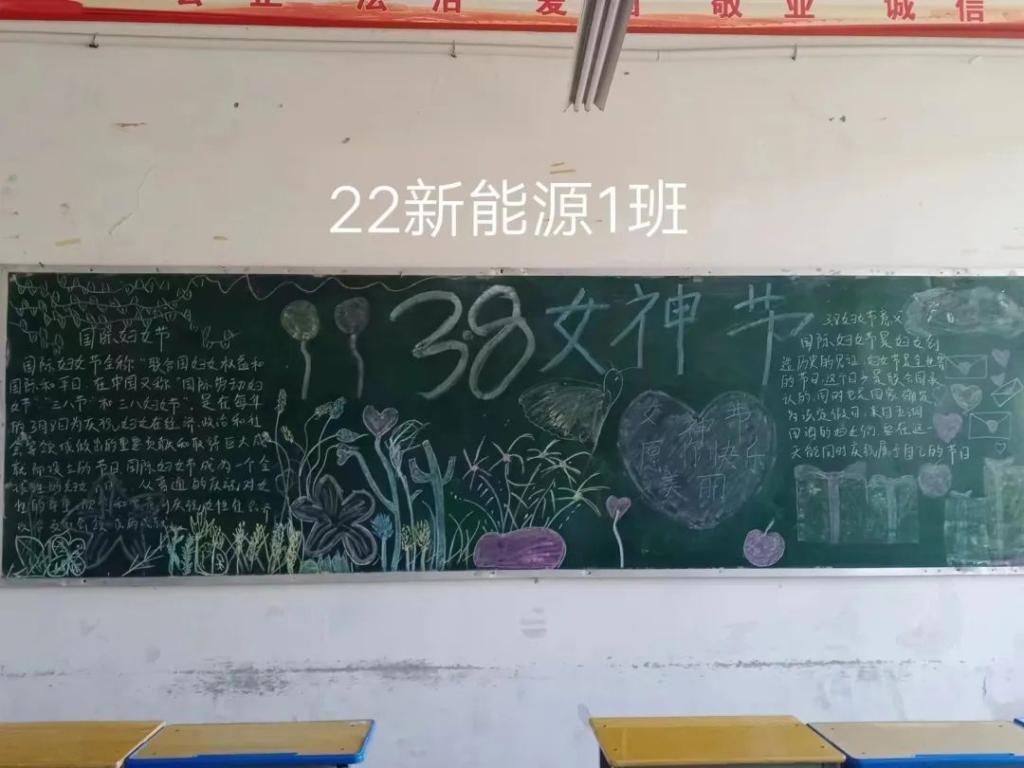 法治 爱 敬业 诚信
22新能源1班
3.8女神节
国际妇女节
国际妇女节全称"联合国妇女权益和
国际和平日,在中国又称"国际劳动妇
女节""三八节"和三八妇女节",是在每年
的3月8日为庆祝妇女在经济、政治和社
会等领域做出的重要贡献和取得巨大成
就而设立的节日。国际妇女节成为一个全
从普通的庆祝对女
女神节
愿 你快乐
美丽
38妇女节意义
国际妇女节是妇女创
造历史的见证,妇女节是全世界
的节日,这个日子是联合国承
认的,同时也 国家
为法定假日,来自五湖
四海的妇女们
天能同时庆祝属于自己的节日